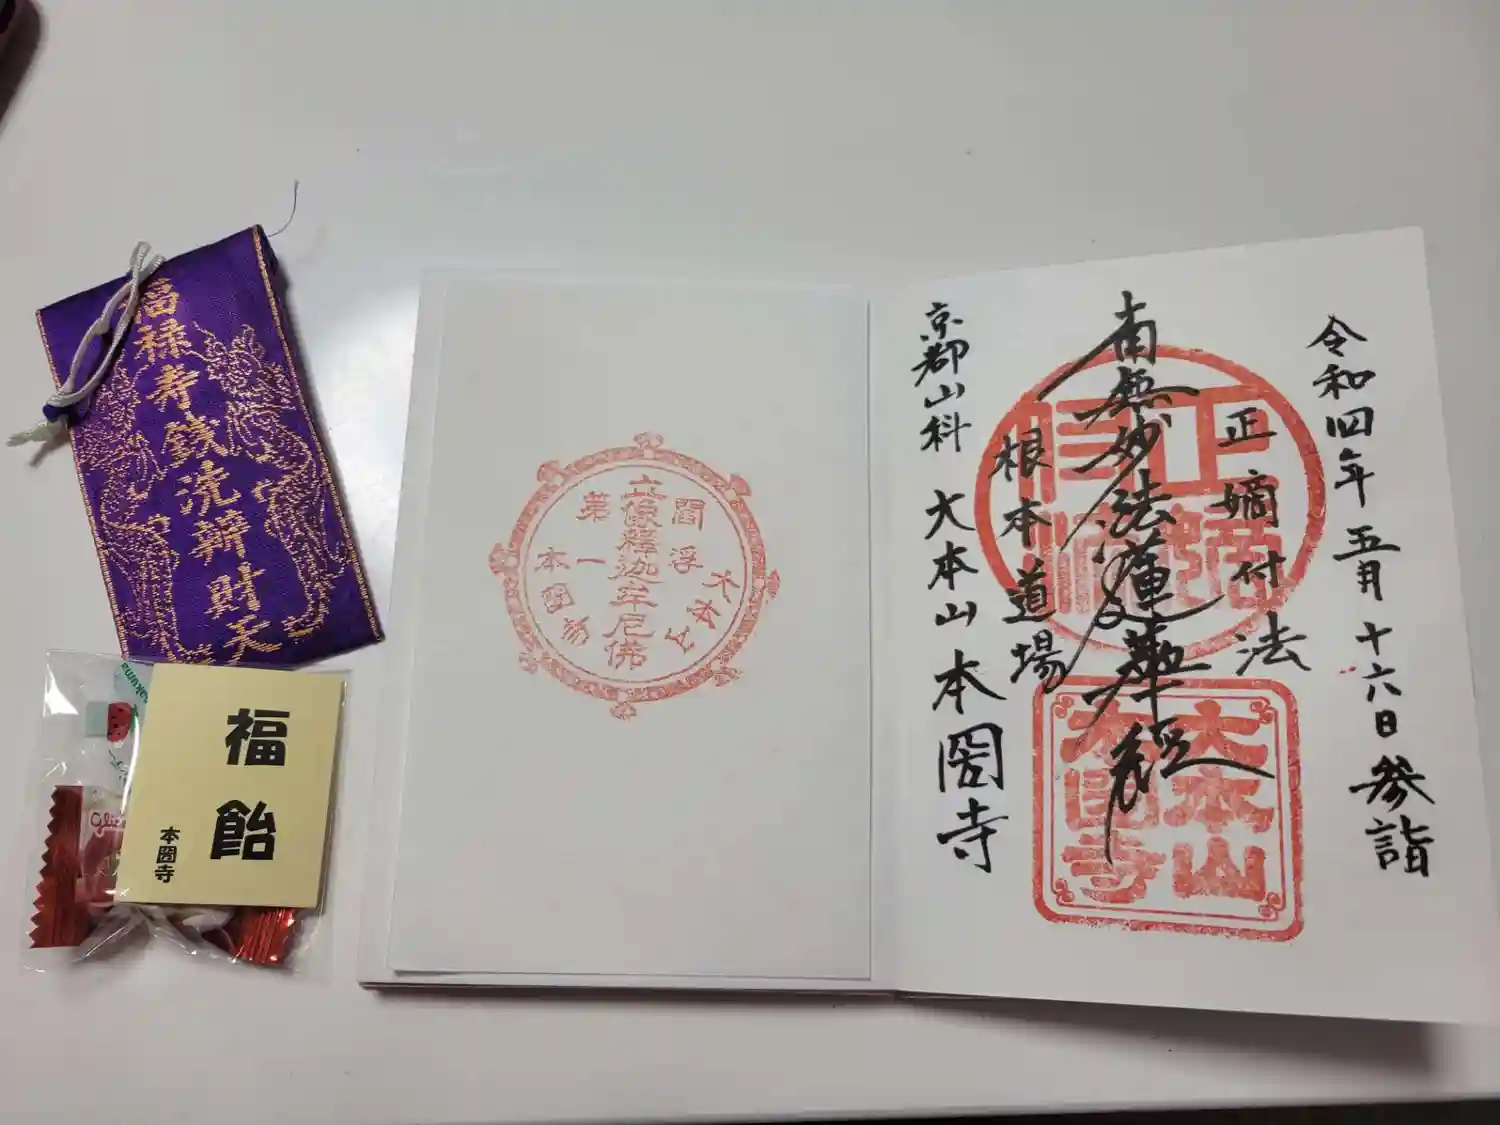 福禄寿銭洗辨財天
sakuma
福飴
本圀寺
閻浮
第一
立像釋迦牟尼佛
大本山
本圀寺
令和四年五月十六日参詣
正嫡付法
南無妙法蓮華経
根本道場
京都山科 大本山 本圀寺
大本山
本圀寺